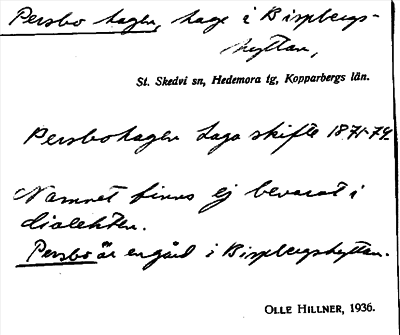 Persbo hagen, hage i Bispbergs-
hyttan,
St. Skedvi sn, Hedemora tg, Kopparbergs län.
Persbohagen Laga skifte 1871-74.
Namnet finns ej bevarat i
dialekten.
Persbo är en gård i Bispbergshyttan.
OLLE HILLNER, 1936.